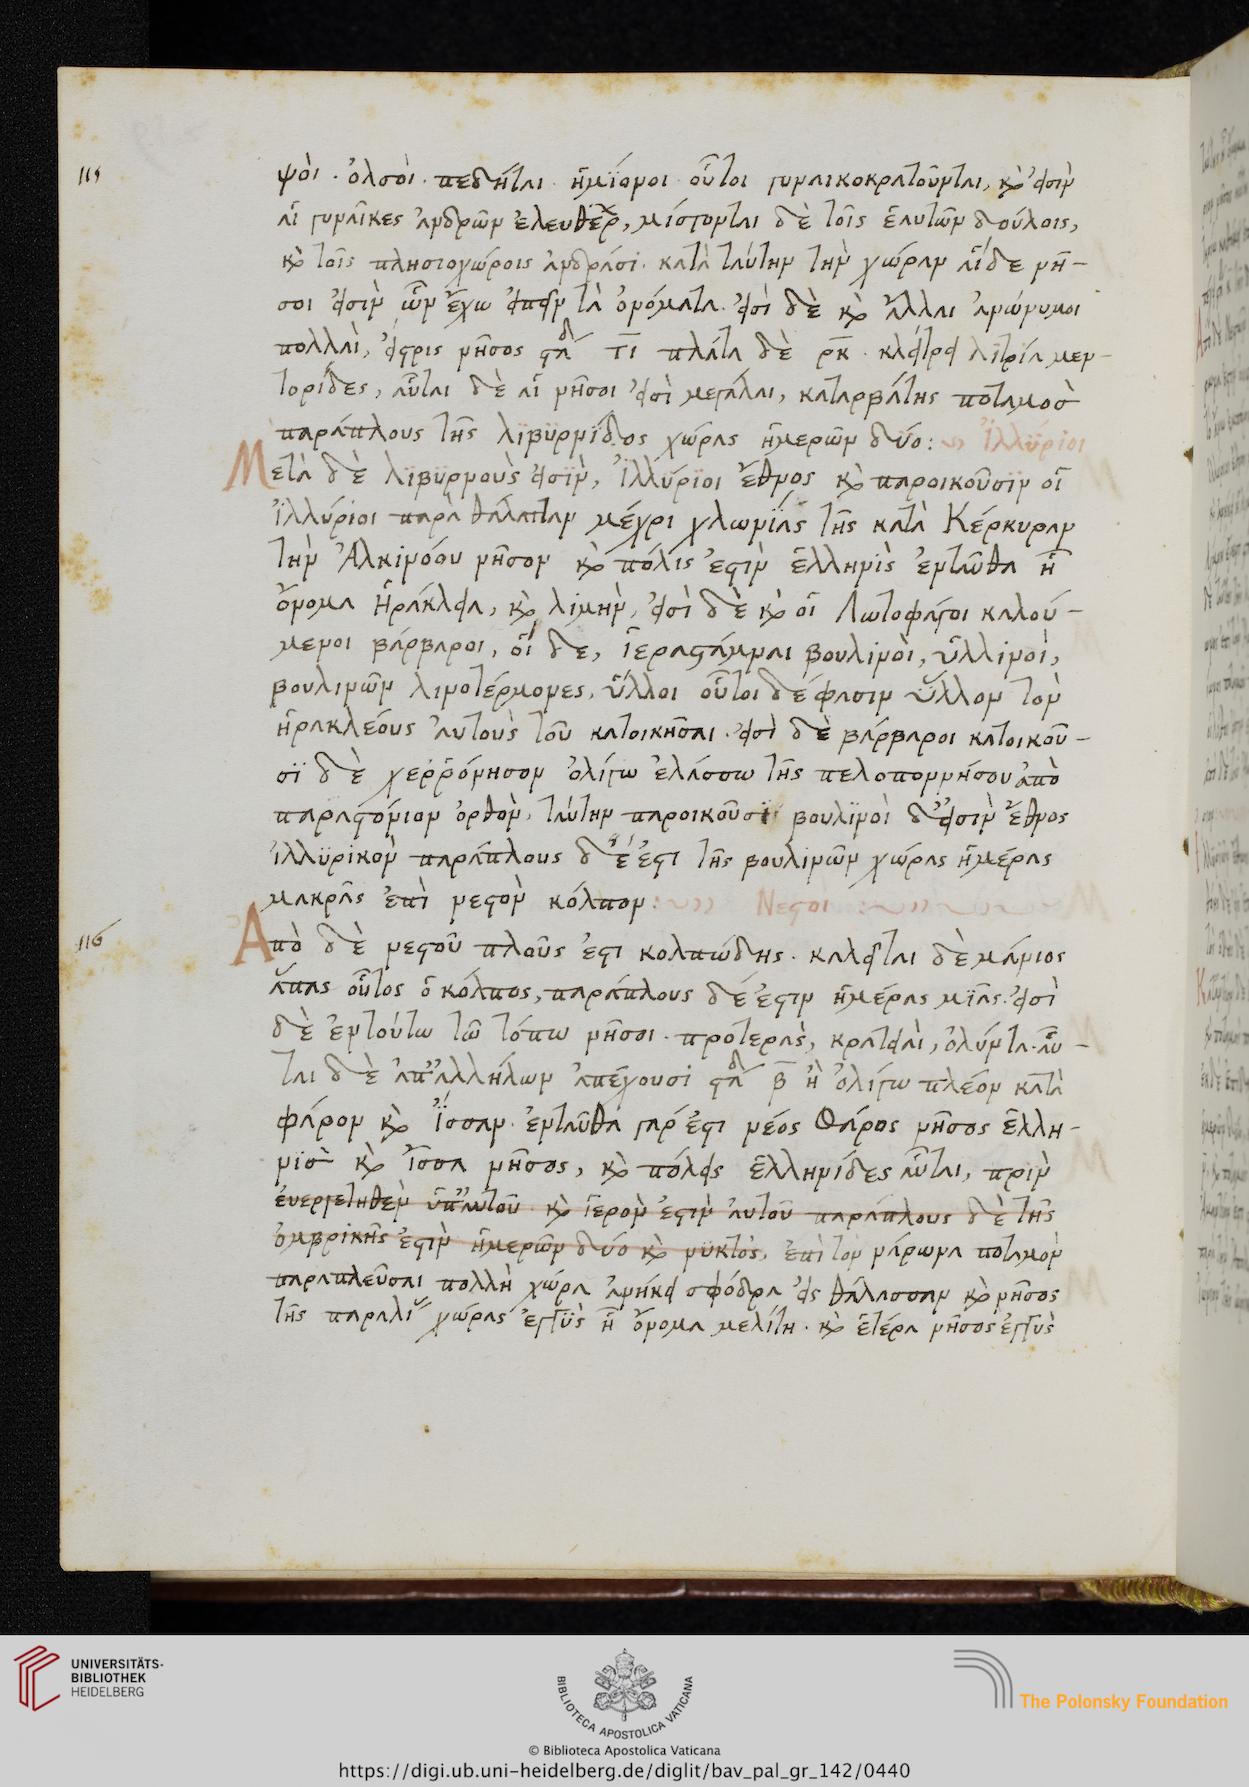 115
ψοὶ · ὀλσοὶ · πεδῆται · ἡμΐονοι · οὗτοι γυναικοκρατοῦνται, κ̀ εἰσὶν
αἱ γυναῖκες ἀνδρῶν ἐλευθέρ, μίσγονται δὲ τοῖς ἑαυτῶν δούλοις,
κ̀ τοῖς πλησιοχώροις ἀνδράσι · κατὰ ταύτην τὴν χώραν αἵδε νῆ-
σοι εἰσὶν ὧν ἔχω εἰπεῖν τὰ ὀνόματα · εἰσὶ δὲ κ̀ ἄλλαι ἀνώνυμοι
πολλαὶ, νῆσος τι πλάτα δὲ ρκ · λϊτρία μεν-
τορίδες, αὗται δὲ αἱ νῆσοι εἰσὶ μεγάλαι, καταρβάτης ποταμοσ
παράπλους τῆς λϊβϋρνίδος χώρας ἡμερῶν δύο: Ἰλλύριοι
Μετὰ δὲ λϊβϋρνοὺς εἰσϊν, Ἰλλύρϊοι ἔθνος κ̀ παροικοῦσϊν οἱ
Ἰλλύριοι παρὰ θάλατταν μέχρι χλωνΐας τῆς κατὰ Κέρκυραν
τὴν Ἀλκινόου νῆσον κ̀ πόλις ἐστὶν ἑλληνὶς ἐνταῦθα ἡ
ὄνομα Ἡράκλεια, κ̀ λιμὴν, εἰσὶ δὲ κ̀ οἱ Λωτοφάγοι καλού-
μενοι βάρβαροι, οἵ δε, ἱεραστάμναι βουλινοὶ, ὕλλινοὶ,
βουλινῶν λινοτέρμονες, ὕλλοι οὗτοι δέ φασιν ὕλλον τὸν
ἡρακλέους ἀυτοὺς τοῦ κατοικῆσαι · εἰσὶ δὲ βάρβαροι κατοικοῦ-
σϊ δὲ χερρόνησον ὀλίγω ἐλάσσω τῆς πελοποννήσου ἀπὸ
παραστόνιον ὀρθὸν, ταύτην παροικοῦσϊ βουλϊνοὶ δ' εἰσὶν ἔθνος
ἰλλϋρικὸν παράπλους δέ ἐστι τῆς βουλινῶν χώρας ἡμέρας
μακρᾶς ἐπὶ νεστὸν κόλπον: Νεστοι
116
Ἀπὸ δὲ νεστοῦ πλοῦς ἐστι κολπώδης · καλεῖται δὲ μάνιος
ἅπας οὗτος ὁ κόλπος, παράπλους δέ ἐστιν ἡμέρας μϊᾶς · εἰσὶ
δὲ ἐν τούτω τῶ τόπω νῆσοι · προτερὰς, κρατειαὶ, ὀλύντα · αὗ-
ται δὲ ἀπ' ἀλλήλων ἀπέχουσι β ἢ ὀλίγω πλέον κατὰ
φάρον κ̀ Ἴσσαν · ἐνταῦθα γάρ ἐστι νέος Φάρος νῆσος ἑλλη-
νὶσ κ̀ Ἴσσα νῆσος, κ̀ πόλεις ἑλληνίδες αὗται, πρὶν
ἐνεργετηθεν ὑπ' αυτοῦ κ̀ ἱερὸν ἐστὶν ἀυτοῦ παράπλους δὲ τῆς
ὀμβρικῆς ἐστὶν ἡμερῶν δύο κ̀ νϋκτὸς, ἐπὶ τὸν νάρωνα ποταμὸν
παραπλεῦσαι πολλὴ χώρα ἀνήκει σφόδρα εἰς θάλασσαν κ̀ νῆσος
τῆς παραλί χώρας ἐγγὺς ἡ ὄνομα μελίτη · κ̀ ἑτέρα νῆσος ἐγγὺς
UNIVERSITÄTS-
BIBLIOTHEK
HEIDELBERG
BIBLIOTECA APOSTOLICA VATICANA
The Polonsky Foundation
© Biblioteca Apostolica Vaticana
https://digi.ub.uni-heidelberg.de/diglit/bav_pal_gr_142/0440